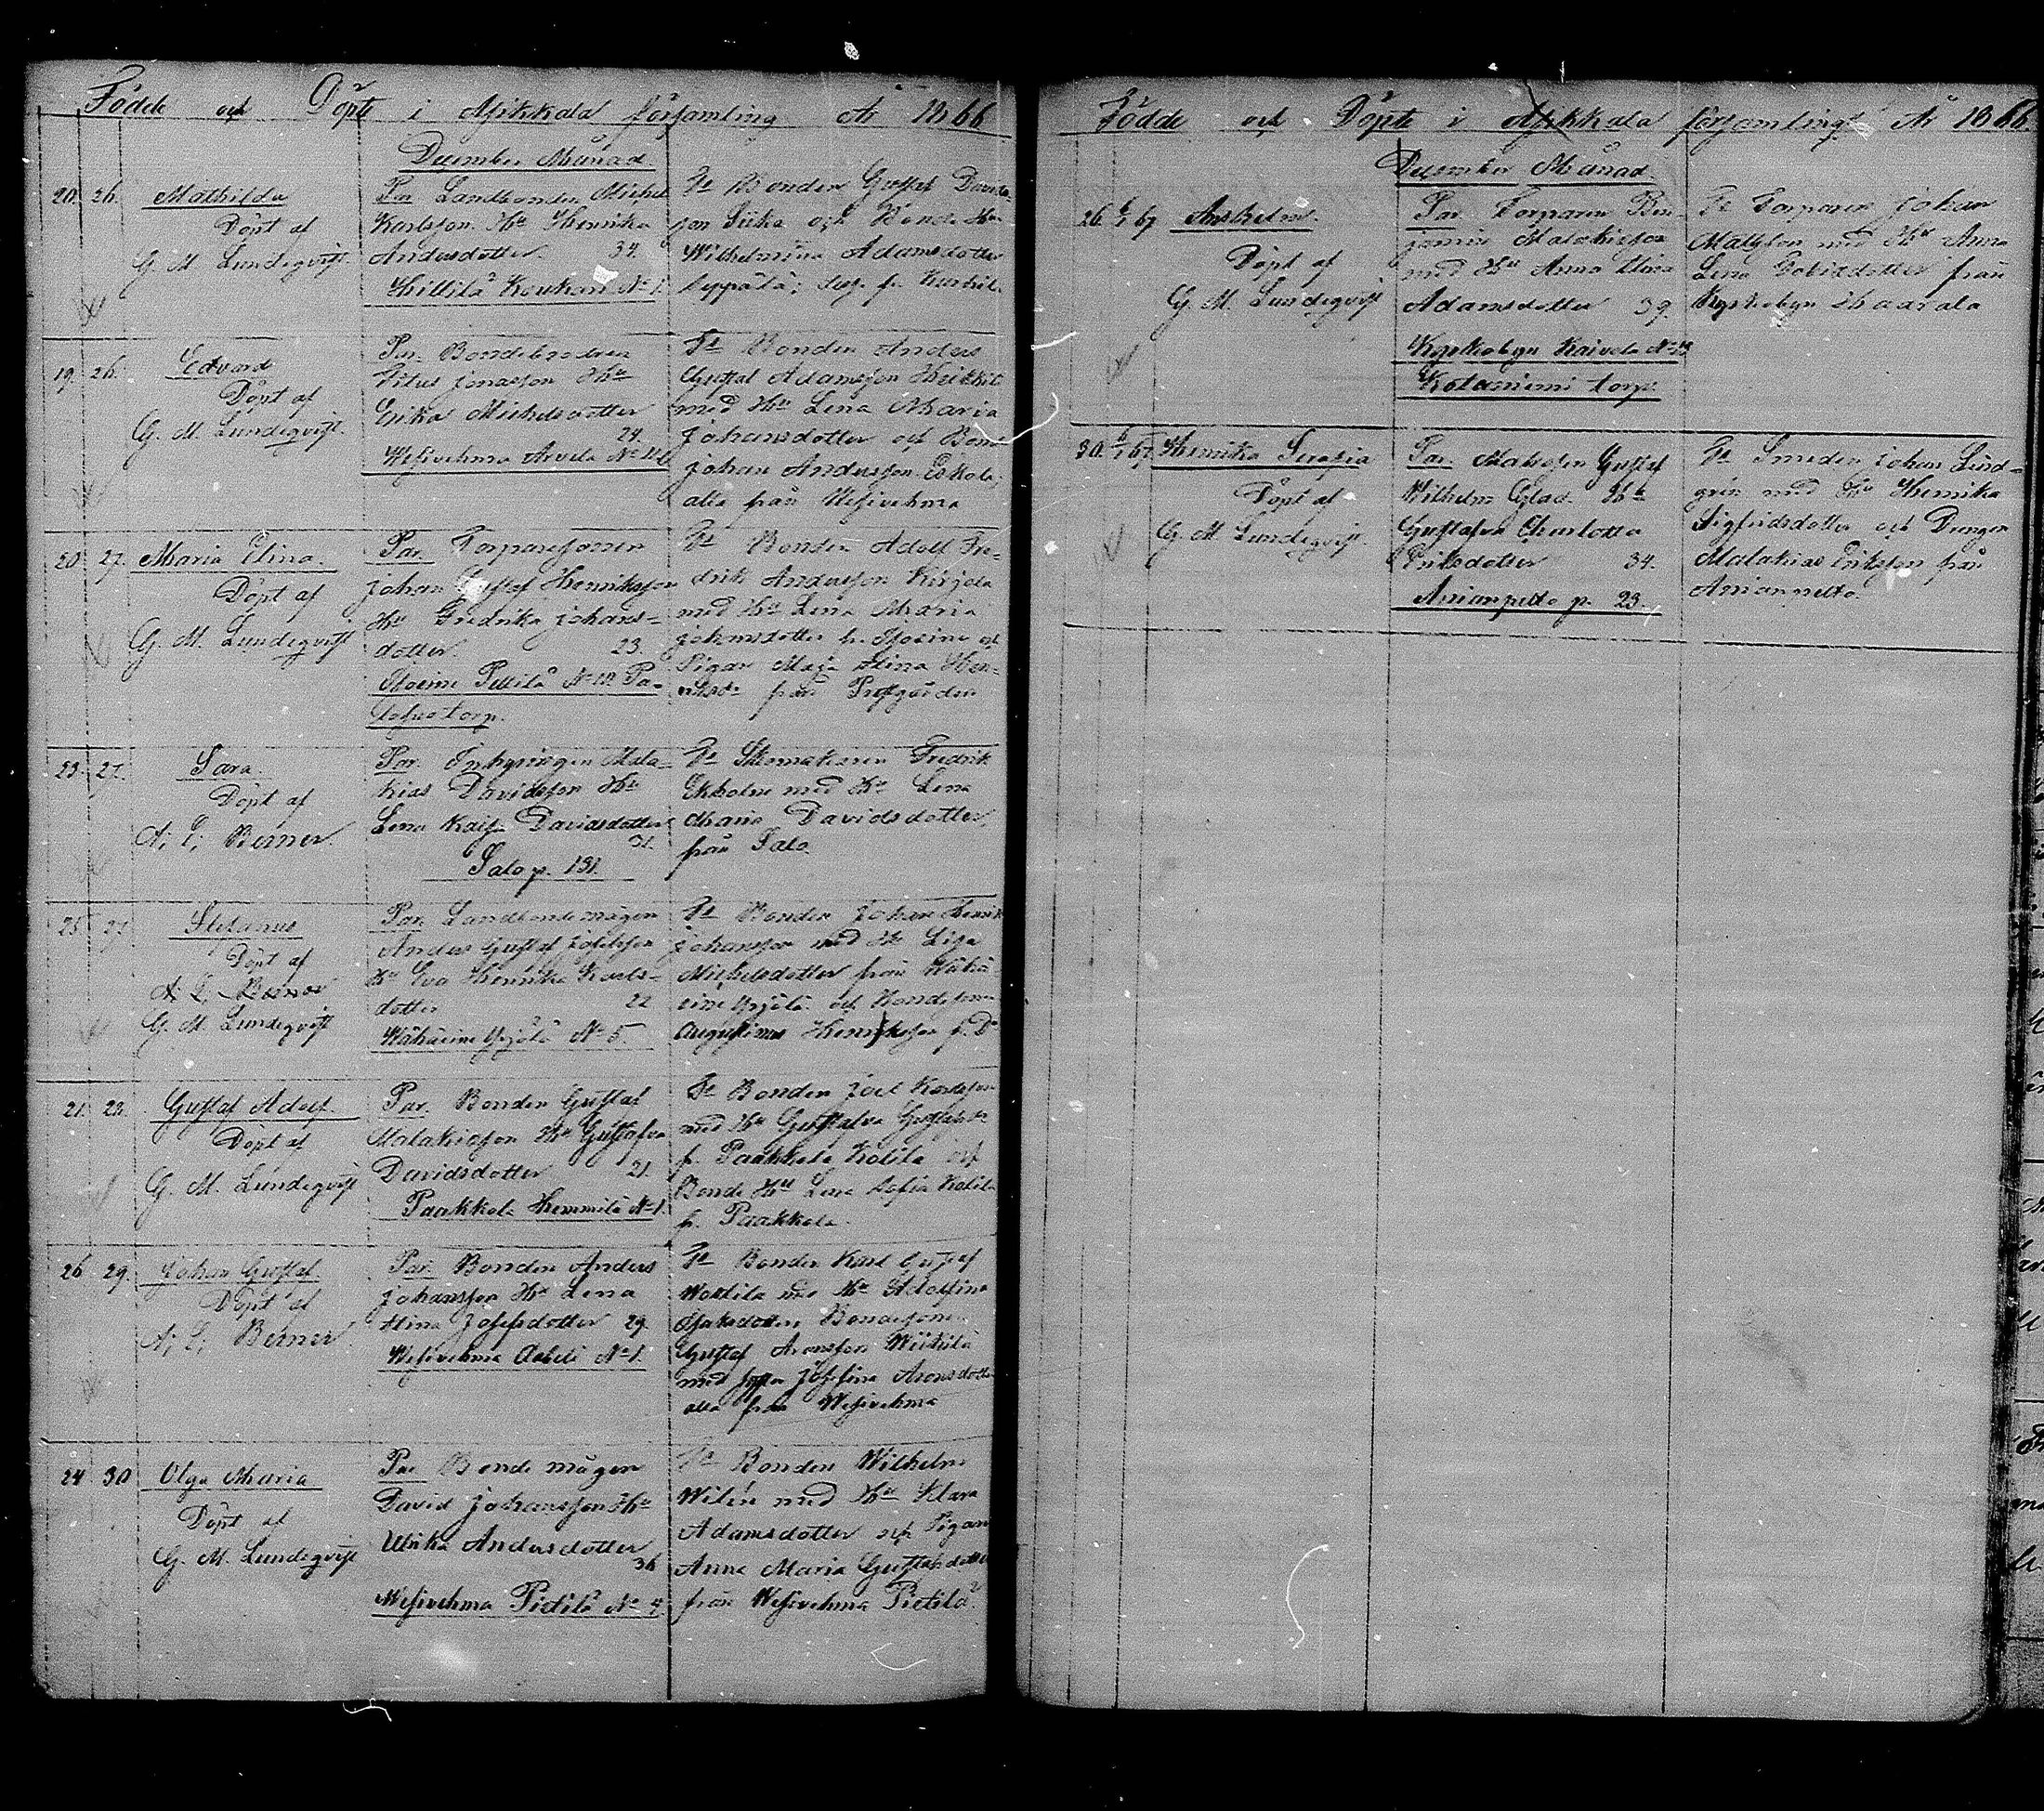 Födde och Döpte i Asikkala församling År 1866
December Månad.
20. 26. Mathilda
Döpt af
G. M. Lundeqvist.
Par. Landbonden Michel
Karlsson Hu Henrika
Andersdotter 34.
Hillilä No 1.
Ft Bonden Gustaf Davids-
son och
Wilhelmina Adamsdotter
19. 26. Edvard
Döpt af
G. M. Lundeqvist.
Par. Bondebrodren
Vitus Jonasson Hu
Erika Michelsdotter
24.
Wesivehma Arvela No
Ft Bonden Anders
Gustaf Adamsson Heikkilä
med Hu Lena Maria
Johansdotter och Bond
Johan Andersson Eskola,
alla från Wesivehma
20 27. Maria Stina.
Döpt af
G. M. Lundeqvist
Par. Torparesonen
Johan Gustaf Henriksson
Hu Fredrika Johans-
dotter. 23.
torp.
Ft Bonden Adolf Fre-
drik Andersson Kirjola
med Hu Lena Maria
Johansdotter och
Pigan Maja Stina Hen-
från
23. 27. Sara.
Döpt af
A. L. Berner.
Par. Inhysingen Mala-
kias Davidsson Hu
Lena Kajsa Davidsdotter
31.
Salo p. 131.
Ft Skomakaren Fredrik
Ekholm med Hu Lena
Maria Davidsdotter
från Salo.
25. 27. Stefanus
Döpt af
A. L. Berner
G. M. Lundeqvist
Par. Landbondemågen
Anders Gustaf Josefsson
Hu Eva Henrika Karls-
dotter 22
Wähäeine Yrjölä No 5.
Ft Bonden Johan Henrik
Johansson med Hu Lisa
Michelsdotter från Wähä-
eine Yrjölä och Bondesonen
Augustinus Henriksson f. Do
21. 28. Gustaf Adolf.
Döpt af
G. M. Lundeqvist
Par. Bonden Gustaf
Malakiasson Hu Gustafva
Davidsdotter 21.
Paakkola Hemmilä No 1.
Ft Bonden Joel Karlsson
med Hu Gustafva Gustafsdr
f. Paakkola Kotila och
Bonde Hu Lena Sofia Kotila
fr. Paakkola.
26 29. Johan Gustaf
Döpt af
A. L. Berner
Par. Bonden Anders
Johansson Hu Lena
Stina Josefsdotter 29.
Wesivehma No 1.
Ft Bonden Karl Gustaf
med Hu Adolfina
Isaksdotter Bondesonen
Gustaf Aronsson
med Josefina Aronsdotter
alla från Wesivehma
24 30 Olga Maria
Döpt af
G. M. Lundeqvist
Par Bondemågen
David Johansson Hu
Ulrika Andersdotter
36
Wesivehma Pietilä No 4.
Ft Bonden Wilhelm
Wilén med Hu Klara
Adamsdotter och Pigan
Anna Maria Gustafsdotter
från Wesivehma Pietilä.
Födde och Döpte i Asikkala församling År 1866.
December Månad.
26. 6/1 67 Anshelm.
Döpt af
G. M. Lundeqvist
Par. Torparen Ben-
jamin Malakiasson
med Hu Anna Stina
Adamsdotter 39.
Kyrkobyn Kaivola No
Kotaniemi torp.
Ft Torparen Johan
Mattsson med Hu Anna
Lena Davidsdotter från
Kyrkobyn
30. 6/1 67. Henrika Serafia
Döpt af
G. M. Lundeqvist.
Par. Gustaf
Wilhelm Glad Hu
Gustafva Charlotta
Eriksdotter 34.
Anianpelto p. 23.
Ft Smeden Johan Lind-
grén med Hu Henrika
Sigfridsdotter och Drengen
Malakias Eriksson från
Anianpelto.